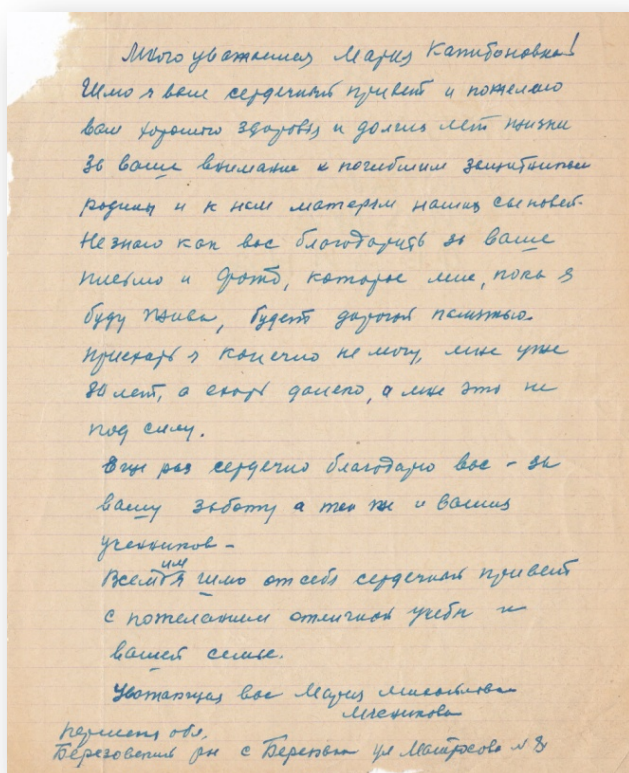 Много уважаемая Мария Капитоновна!
Шлю я вам сердечный привет и пожелаю
вам хорошего здоровья и долгих лет жизни
за ваше внимание к погибшим защитникам
родины и к нам матерям наших сыновей.
Не знаю как вас благодарить за ваше
письмо и фото, которое мне, пока я
буду жива, будет дорогой памятью.
Приехать я конечно не могу, мне уже
80 лет, а ехать далеко, а мне это не
под силу.
Еще раз сердечно благодарю вас – за
вашу заботу а так же и ваших
учеников –
им
Всем я шлю от себя сердечный привет
с пожеланием отличной учебы и
вашей семье.
Уважающая вас Мария
Мясникова
Пермская обл.
Березовский рн с Березовка ул Матросова №